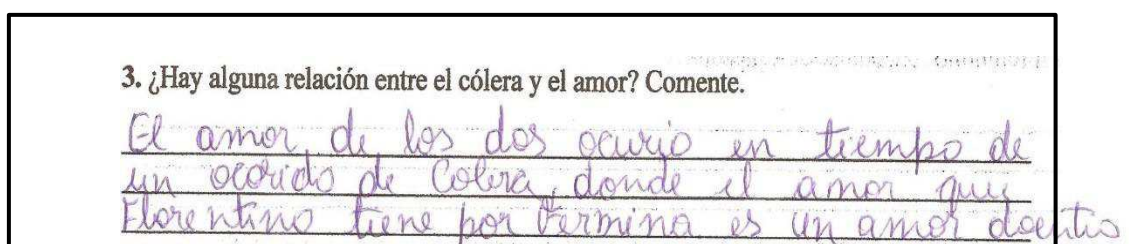 3. ¿Hay alguna relación entre el cólera y el amor? Comente.
El amor de los dos ocurio en tiempo de
un ocorido de Colera, donde el amor que
Florentino tiene por Fermina es un amor doentio